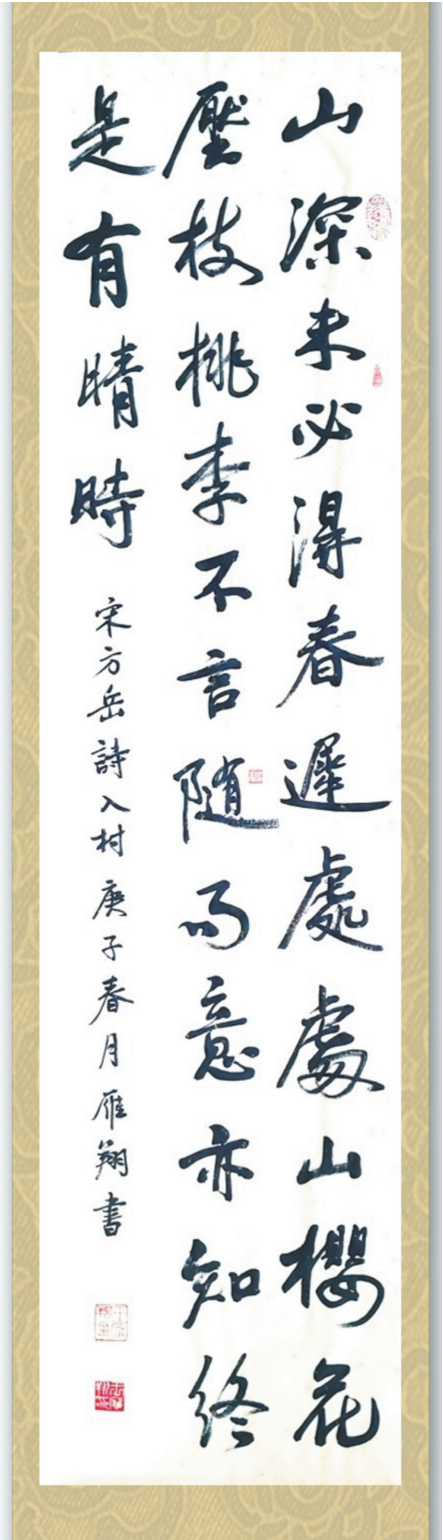 山深未必得春遲處處山櫻花
壓枝桃李不言随雨意亦知終
是有晴時
宋方岳詩入村庚子春月雁翔書